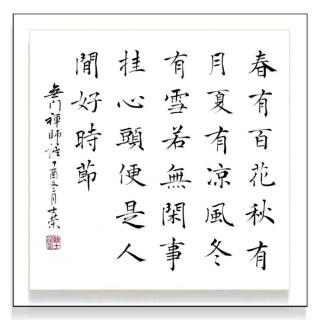 春有百花秋有
月夏有凉風冬
有雪若無閑事
挂心頭便是人
間好時節
無门禪師詩丁酉冬月士荣